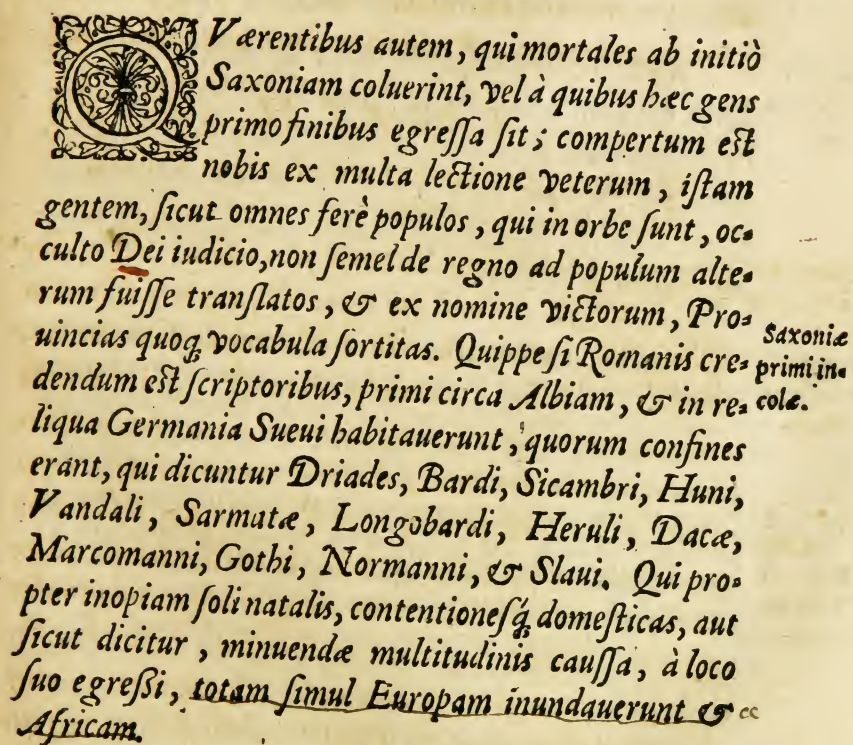 QVærentibus autem, qui mortales ab initiò
Saxoniam coluerint, vel à quibus hæc gens
primo finibus egreſſa ſit; compertum eſt
nobis ex multa lectione veterum, iſtam
gentem, ſicut omnes ferè populos, qui in orbe ſunt, oc-
culto Dei iudicio, non ſemel de regno ad populum alte-
rum fuiſſe tranſlatos, & ex nomine victorum, Pro-
uincias quoq; vocabula ſortitas. Quippe ſi Romanis cre-
dendum eſt ſcriptoribus, primi circa Albiam, & in re-
liqua Germania Sueui habitauerunt, quorum confines
erant, qui dicuntur Driades, Bardi, Sicambri, Huni,
Vandali, Sarmatæ, Longobardi, Heruli, Dacæ,
Marcomanni, Gothi, Normanni, & Slaui. Qui pro-
pter inopiam ſoli natalis, contentioneſq́; domeſticas, aut
ſicut dicitur, minuendæ multitudinis cauſſa, à loco
ſuo egreſſi, totam ſimul Europam inundauerunt &
Africam.
Saxoniæ
primi in-
colæ.